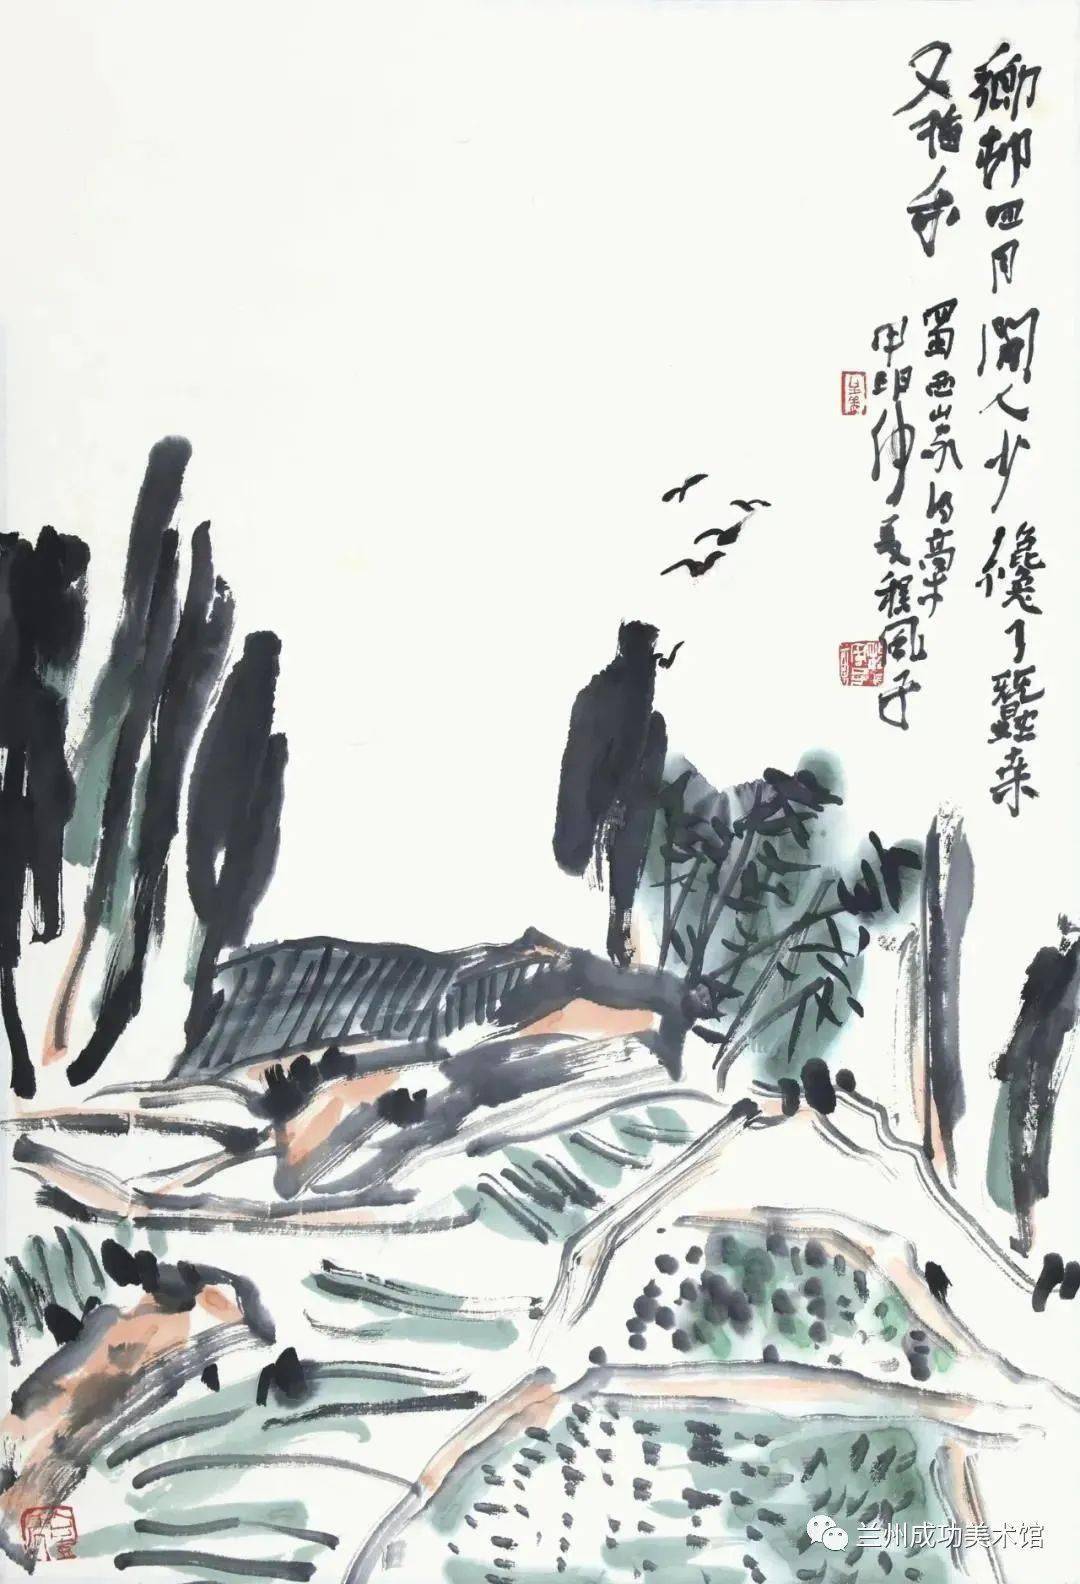 鄉邨四月閒人少纔了蠶桒
又插禾
蜀西山家自高求
甲申仲夏程風子
兰州成功美术馆